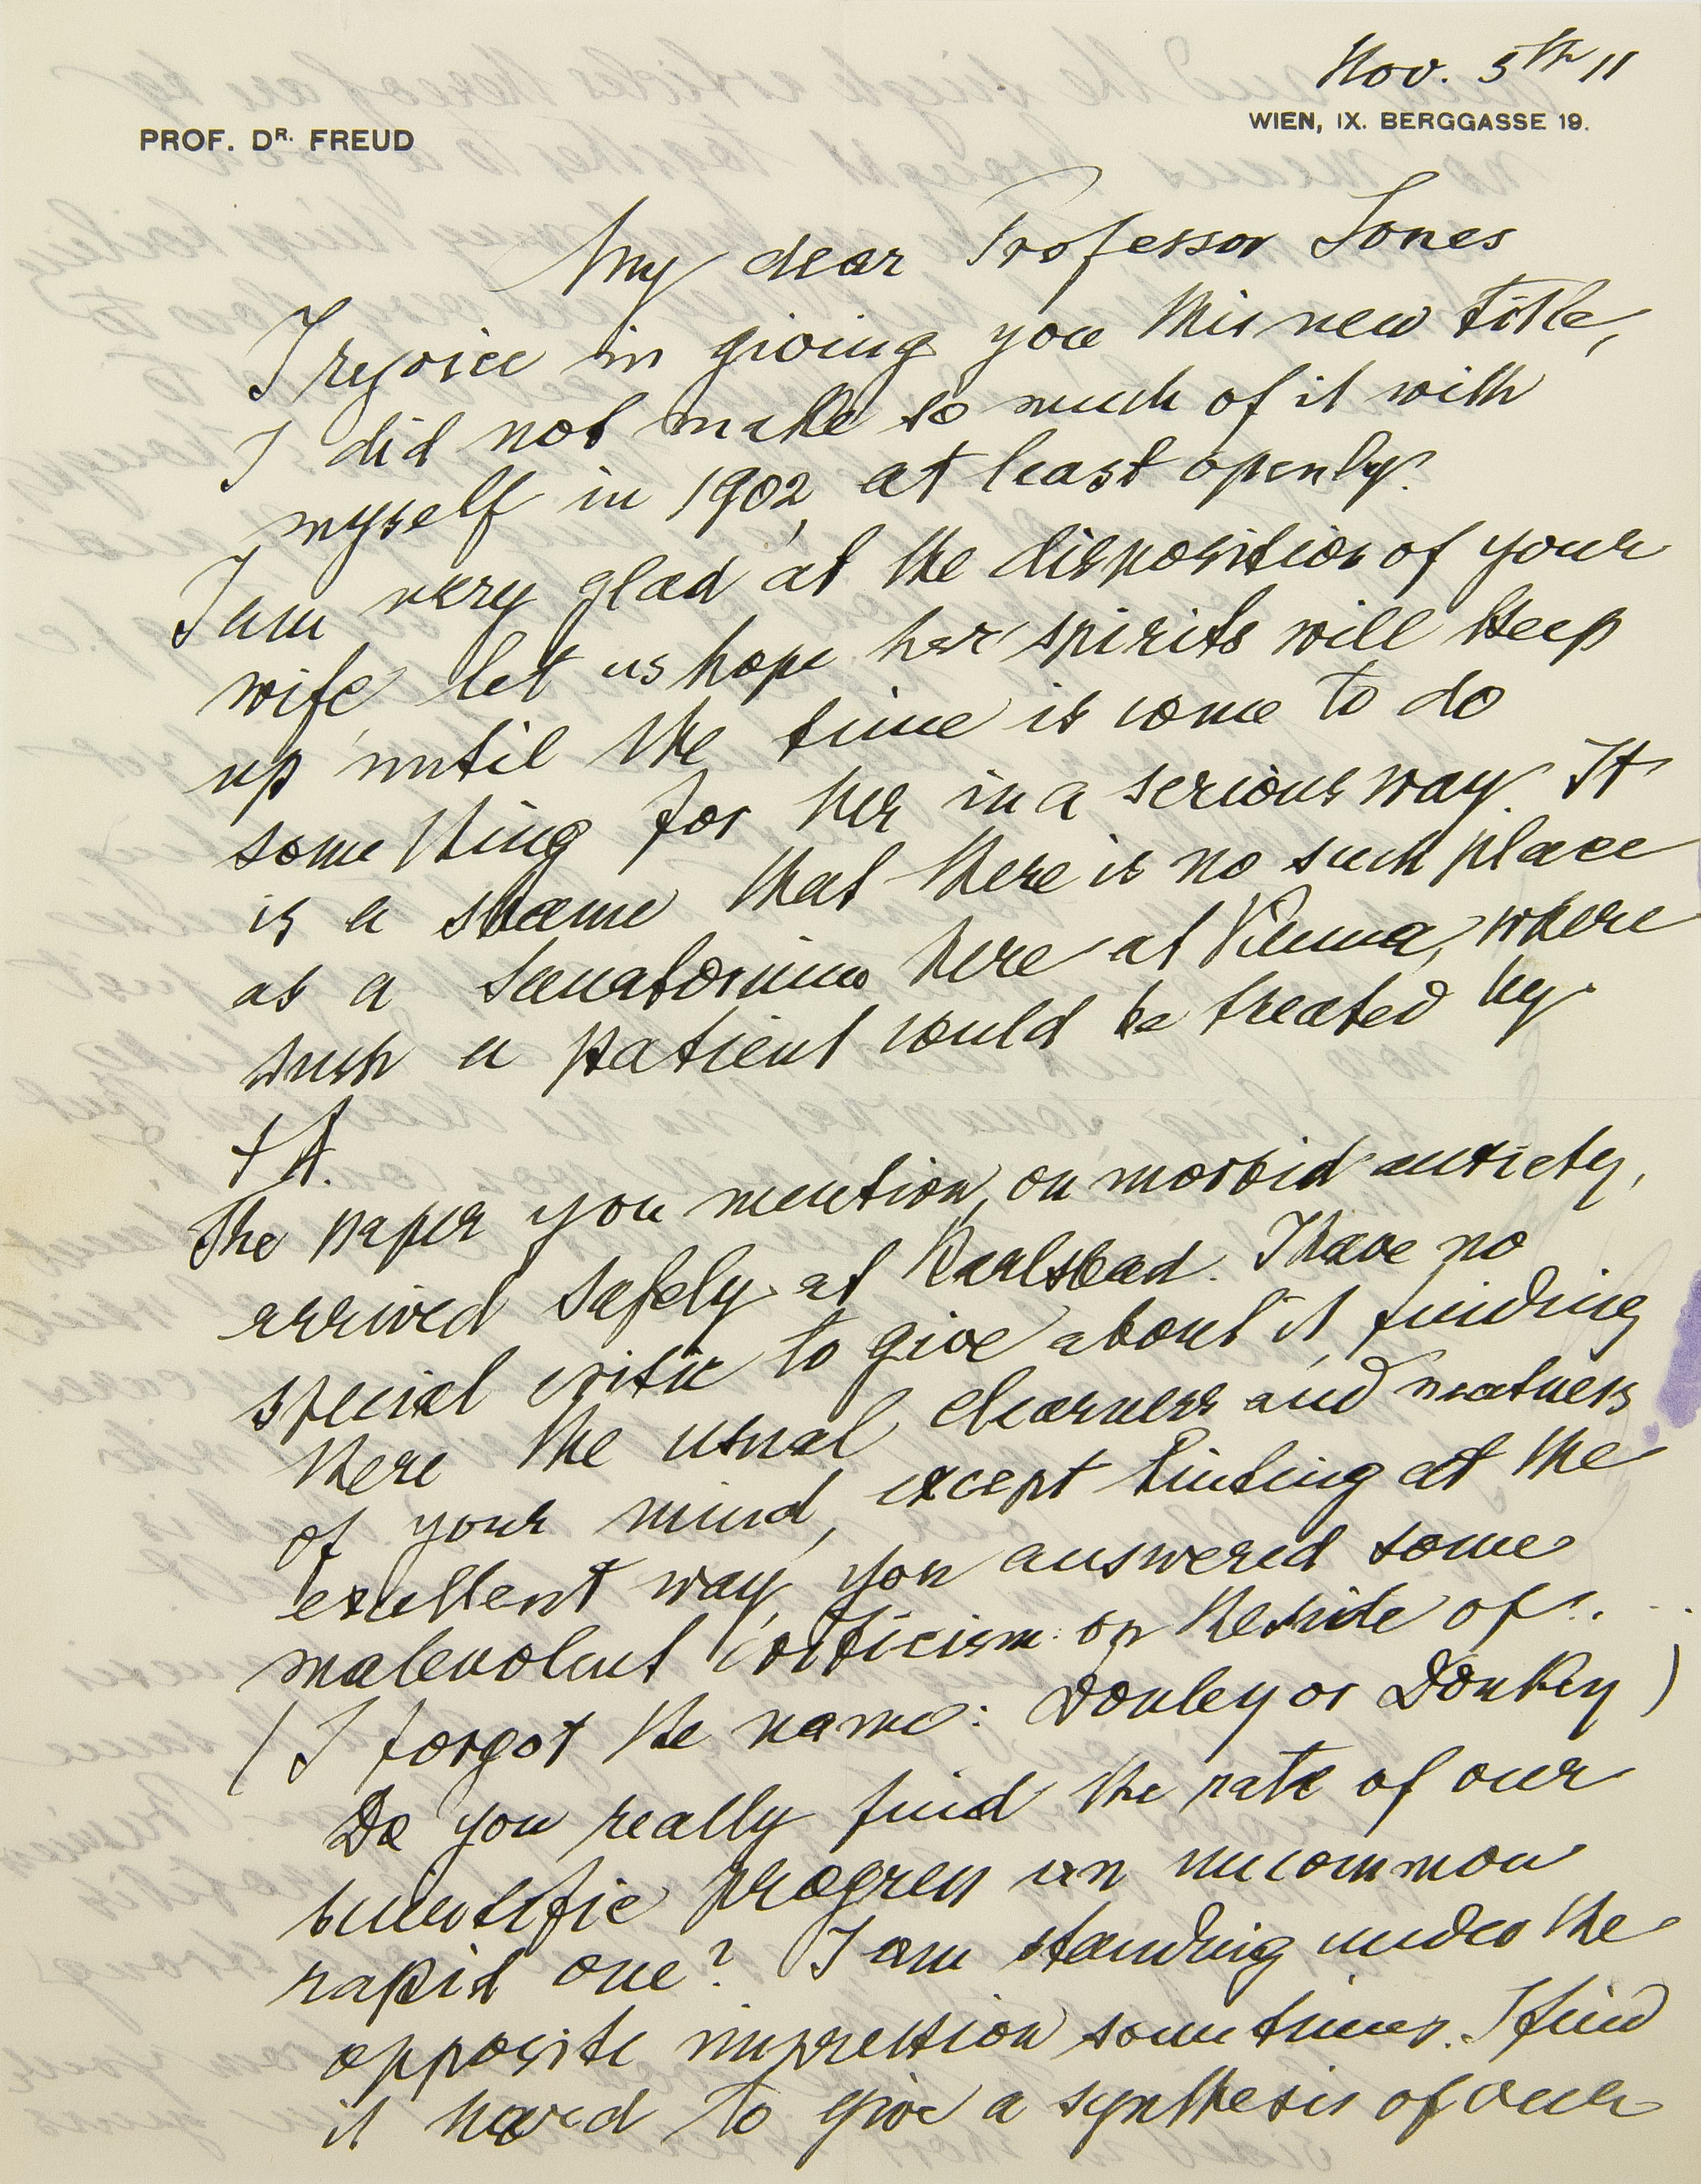 Nov. 5th 11
WIEN, IX. BERGGASSE 19.
PROF. DR. FREUD
My dear Professor Jones
I rejoice in giving you this new title,
I did not make so much of it with
myself in 1902, at least openly.
I am very glad at the disposition of your
wife, let us hope her spirits will keep
up until the time is come to do
something for her in a serious way. It
is a shame that there is no such place
as a sanatorium here at Vienna, where
such a patient could be treated by
ΨA.
The paper you mention, on morbid anxiety,
arrived safely at Karlsbad. I have no
special critic to give about it, finding
there the usual clearness and neatness
of your mind, except hinting at the
excellent way, you answered some
malevolent criticism on the side of . . . .
(I forgot the name: Donley or Donkey)
Do you really find the rate of our
scientific progress an uncommon
rapid one? I am standing under the
opposite impression sometimes. I find
it hard to give a synthesis of our